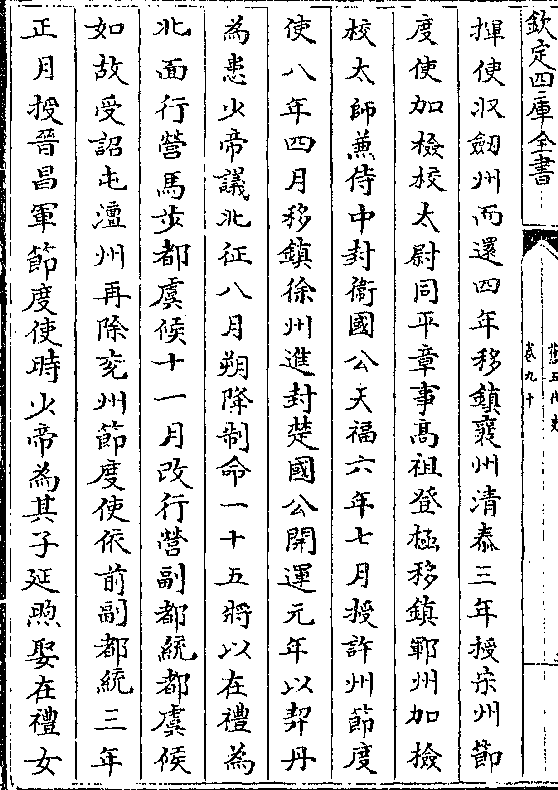 欽定四庫全書
舊五代史
卷九十
揮使収劒州而還四年移鎮襄州清泰三年授宋州節
度使加檢校太尉同平章事髙祖登極移鎮鄆州加檢
校太師兼侍中封衛國公天福六年七月授許州節度
使八年四月移鎮徐州進封楚國公開運元年以契丹
為患少帝議北征八月朔降制命一十五將以在禮為
北面行營馬步都虞候十一月改行營副都統都虞候
如故受詔屯澶州再除兖州節度使依前副都統三年
正月授晉昌軍節度使時少帝為其子延煦娶在禮女